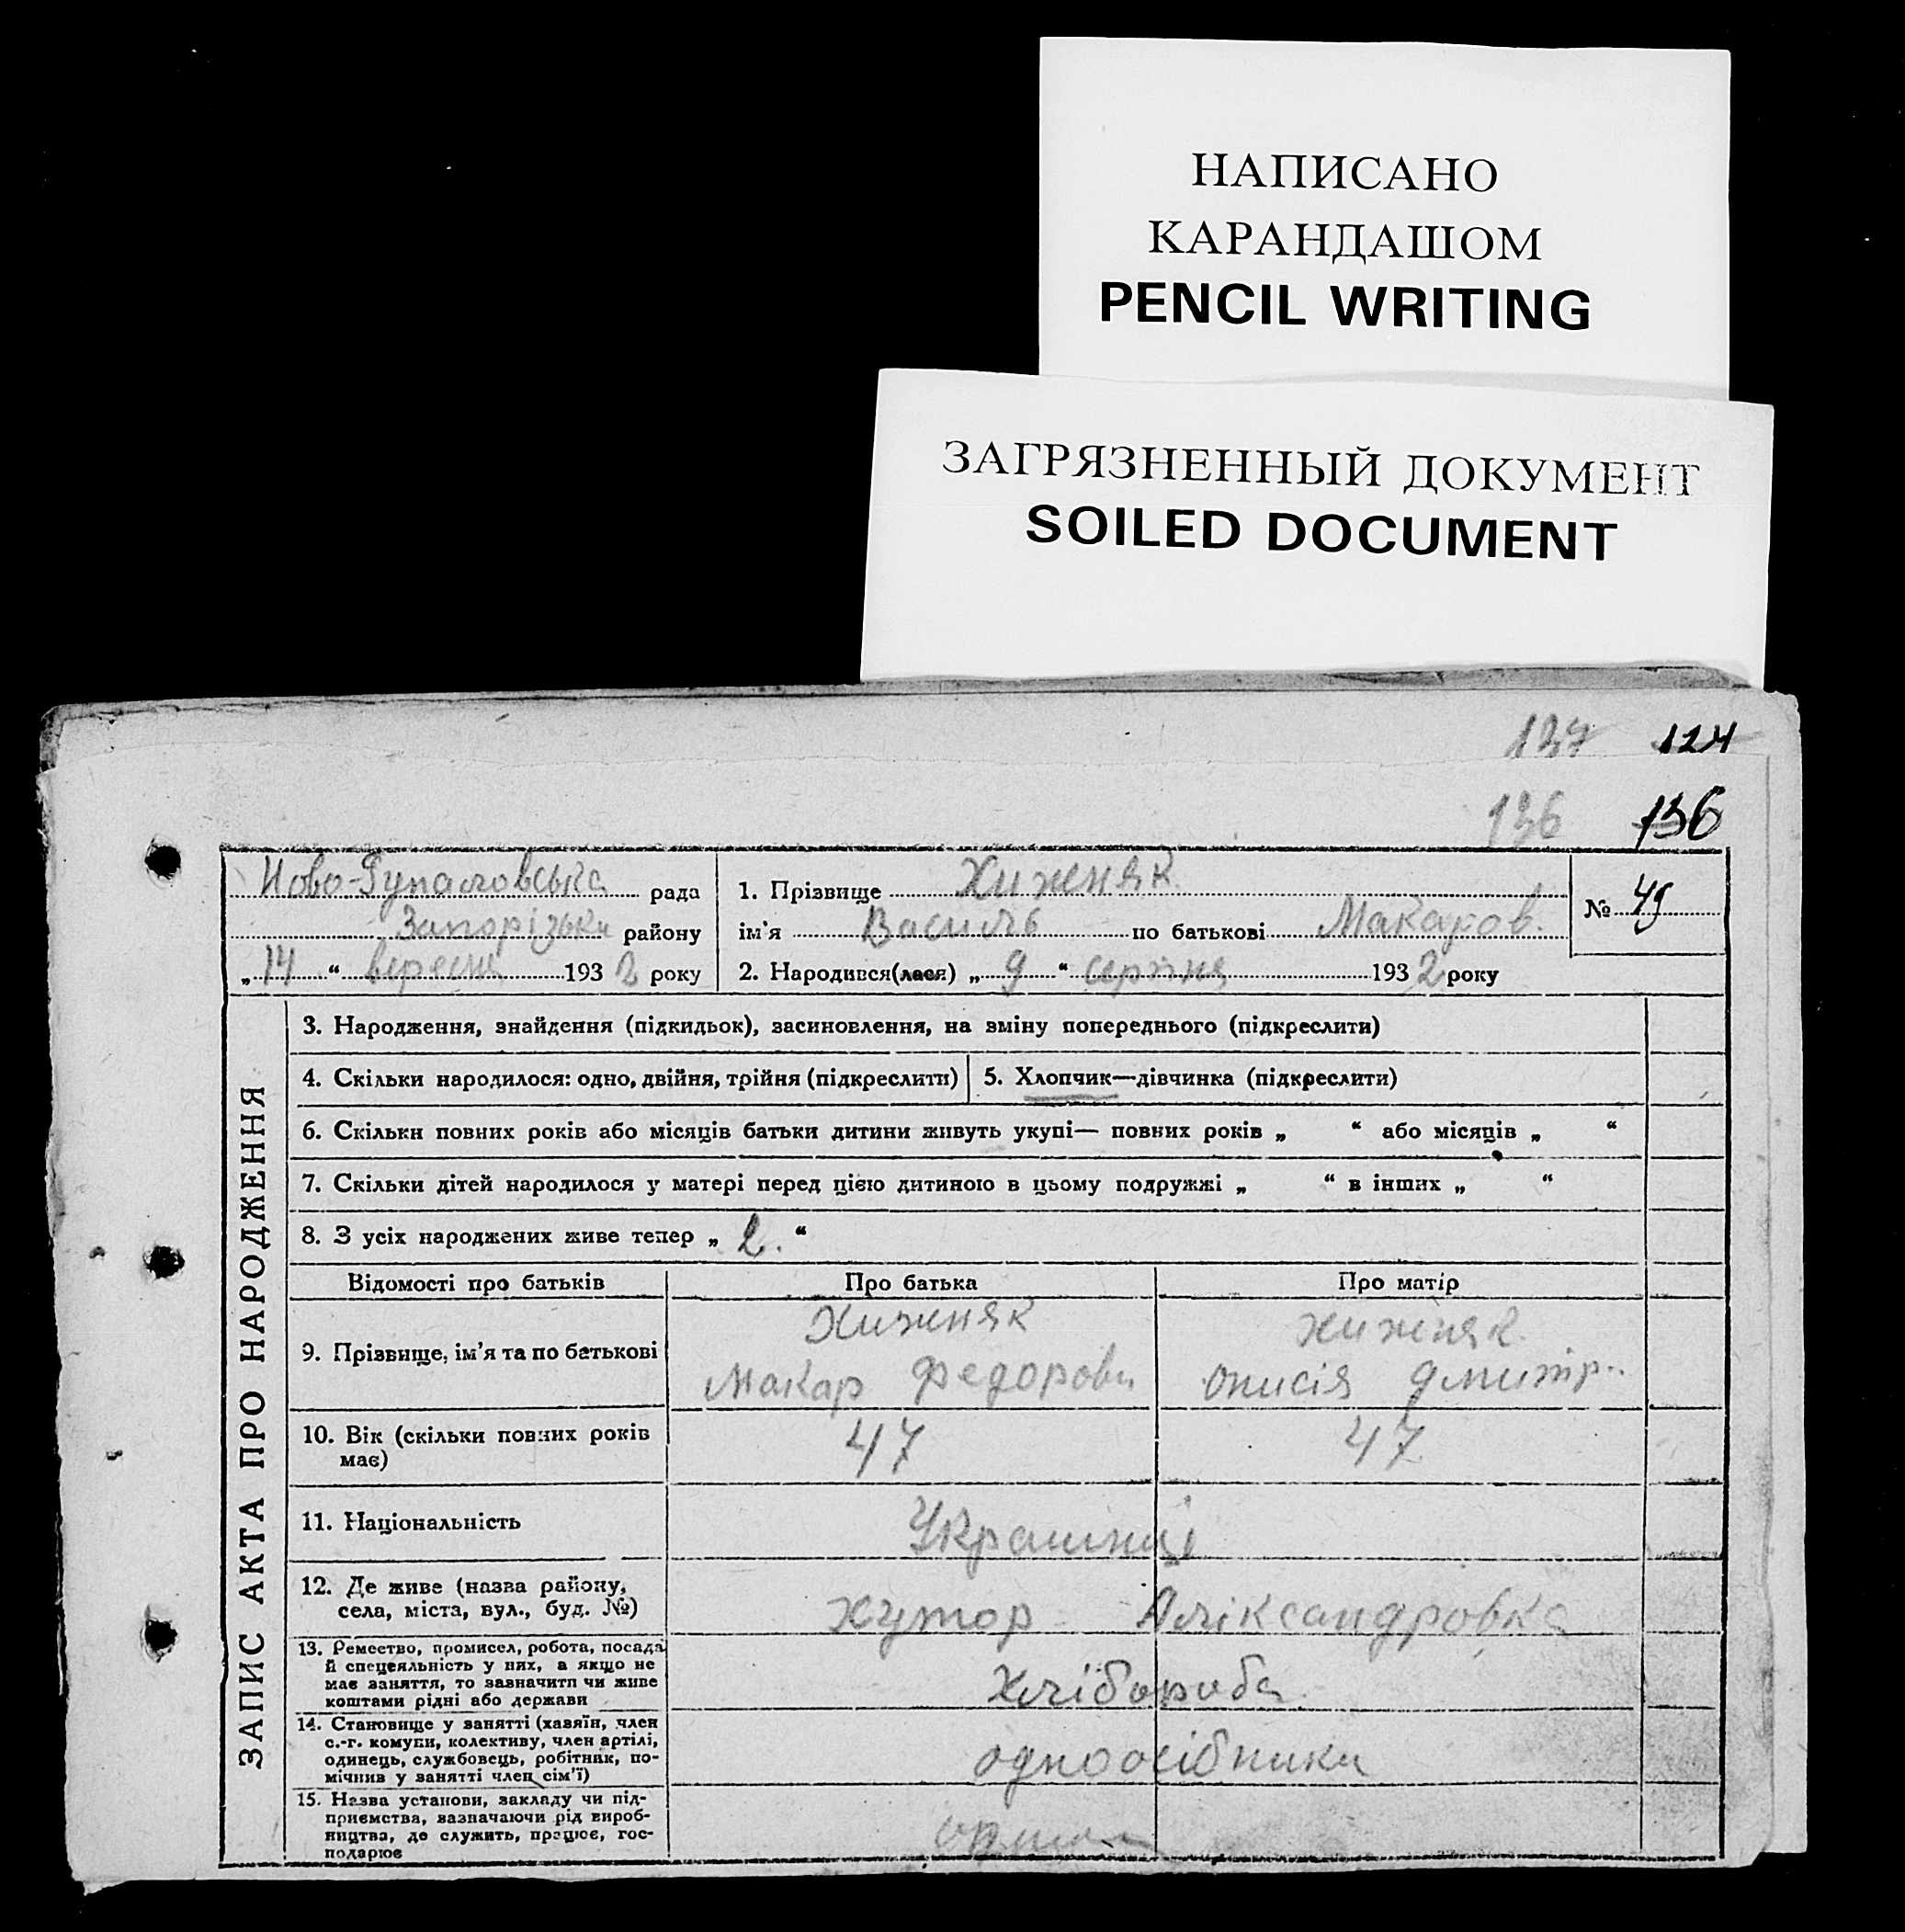 НАПИСАНО
КАРАНДАШОМ
PENCIL WRITING
ЗАГРЯЗНЕННЫЙ ДОКУМЕНТ
SOILED DOCUMENT
137 124
136 136
Ново-Гупаловська рада
Запорізьки району
„14“ вересня 1932 року
1. Прізвище Хижняк
ім'я Василь по батькові Макаров.
2. Народився(лася) „9“ серпня 1932 року
№ 49
ЗАПИС АКТА ПРО НАРОДЖЕННЯ
3. Народження, знайдення (підкидьок), засиновлення, на зміну попереднього (підкреслити)
4. Скільки народилося: одно, двійня, трійня (підкреслити) 5. Хлопчик—дівчинка (підкреслити)
6. Скільки повних років або місяців батьки дитини живуть укупі— повних років „ “ або місяців „ “
7. Скільки дітей народилося у матері перед цією дитиною в цьому подружжі „ “ в інших „ “
8. З усіх народжених живе тепер „ 2. “
Відомості про батьків Про батька Про матір
9. Прізвище, ім'я та по батькові
Хижняк
Макар Федорови
Хижняк.
Онисія Дмитр..
10. Вік (скільки повних років
має)
47 47
11. Національність
Украинці
12. Де живе (назва району,
села, міста, вул., буд. №)
хутор Аліксандровка
13. Ремество, промисел, робота, посада
й спецеяльність у них, а якщо не
має заняття, то зазначити чи живе
коштами рідні або держави
Хлібороба
14. Становище у занятті (хазяїн, член
с.-г. комуни, колективу, член артілі,
одинець, службовець, робітник, по-
мічник у занятті член сім'ї)
одноосібники
15. Назва установи, закладу чи під-
приємства, зазначаючи рід вироб-
ництва, де служить, працює, гос-
подарює